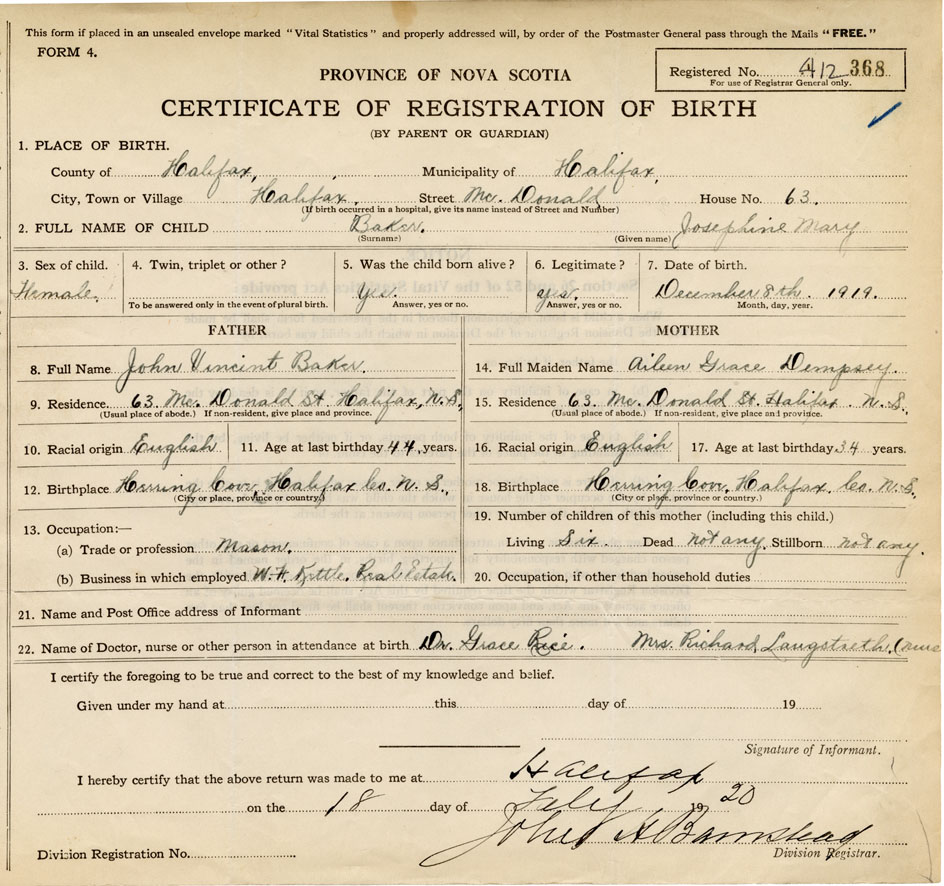 This form if placed in an unsealed envelope marked "Vital Statistics" and properly addressed will, by order of the Postmaster General pass through the Mails "FREE."
FORM 4.
Registered No. 412 368
For use of Registrar General only.
PROVINCE OF NOVA SCOTIA
CERTIFICATE OF REGISTRATION OF BIRTH
(BY PARENT OR GUARDIAN)
1. PLACE OF BIRTH.
County of Halifax, Municipality of Halifax,
City, Town or Village Halifax, Street Mc. Donald House No. 63.
(If birth occurred in a hospital, give its name instead of Street and Number)
2. FULL NAME OF CHILD Baker. Josephine Mary
(Surname) (Given name)
3. Sex of child. 4. Twin, triplet or other? 5. Was the child born alive? 6. Legitimate? 7. Date of birth.
Female. yes. yes. December 8th. 1919.
To be answered only in the event of plural birth. Answer, yes or no. Answer, yes or no. Month, day, year.
FATHER MOTHER
8. Full Name John Vincint Baker. 14. Full Maiden Name Aileen Grace Dempsey.
9. Residence. 63. Mc. Donald St. Halifax, N. S., 15. Residence 63. Mc. Donald St. Halifax. N. S.,
(Usual place of abode.) If non-resident, give place and province. (Usual place of abode.) If non-resident, give place and province.
10. Racial origin English 11. Age at last birthday 44, years. 16. Racial origin English 17. Age at last birthday 34 years.
12. Birthplace Herring Cove, Halifax Co. N. S., 18. Birthplace Herring Cove, Halifax, Co. N. S.
(City or place, province or country.) (City or place, province or country.)
19. Number of children of this mother (including this child.)
13. Occupation:—
(a) Trade or profession Mason. Living Six. Dead not any. Stillborn not any.
(b) Business in which employed W. Kittle. Real Estate. 20. Occupation, if other than household duties
21. Name and Post Office address of Informant
22. Name of Doctor, nurse or other person in attendance at birth Dr. Grace Rice. Mrs. Richard Langstreth.
I certify the foregoing to be true and correct to the best of my knowledge and belief.
Given under my hand at this day of 19
Signature of Informant.
I hereby certify that the above return was made to me at Halifax
on the 18 day of July, 1920
John A Barnstead
Division Registration No. Division Registrar.